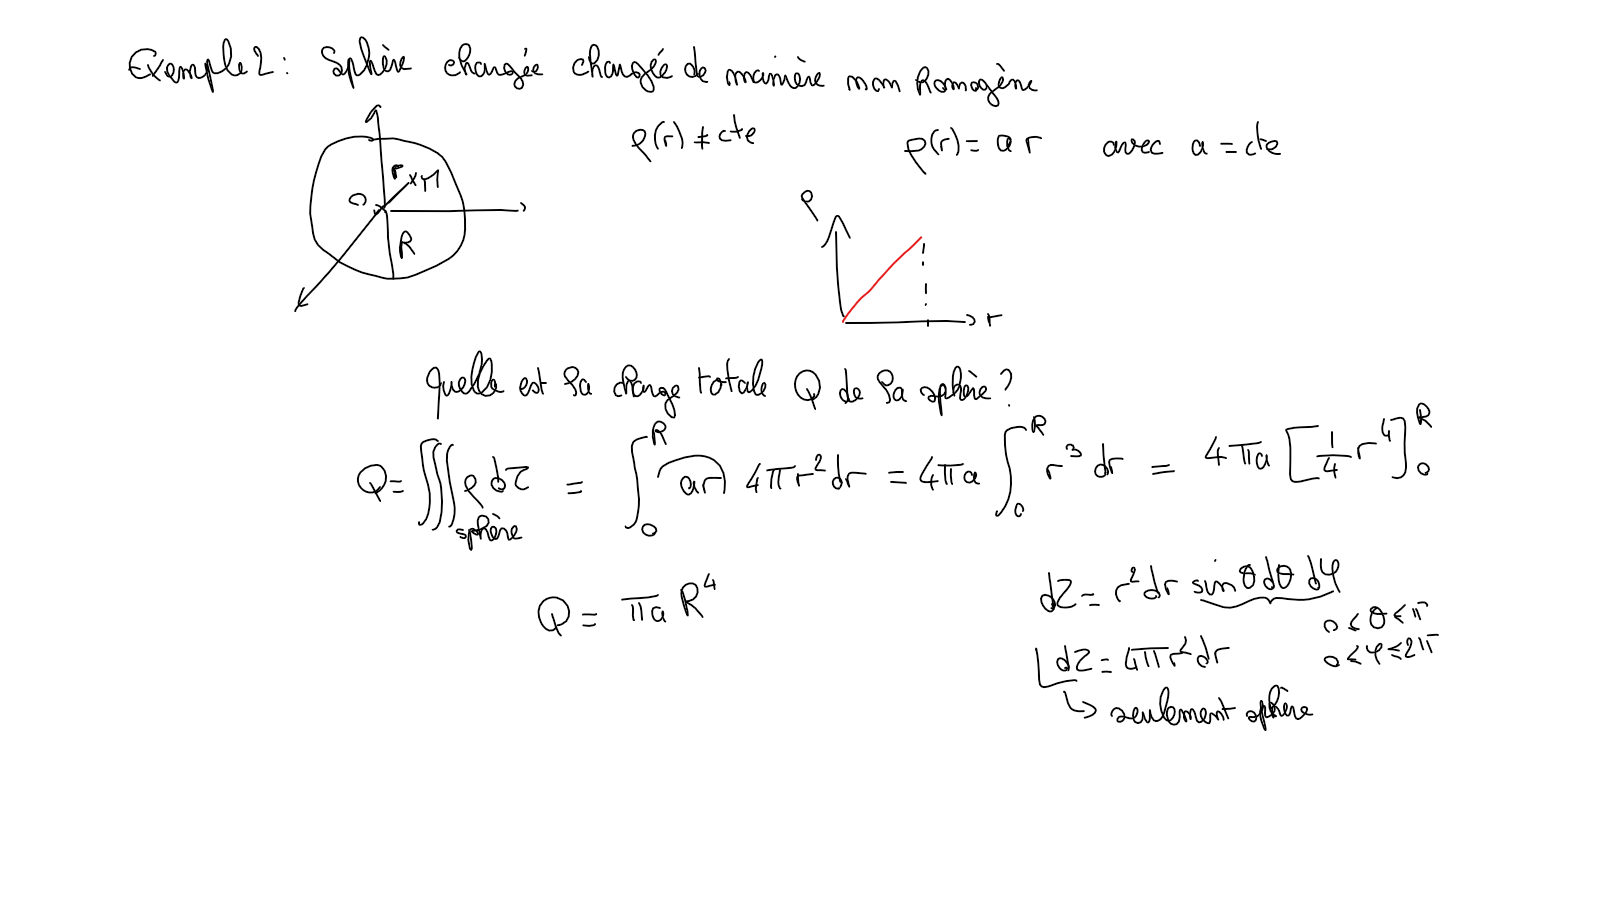 Exemple 2 : Sphère chargée chargée de manière non homogène
ρ(r) ≠ cte ρ(r) = a r avec a = cte
r M
O
R
ρ
r
Quelle est la charge totale Q de la sphère ?
Q = ∭_sphère ρ dτ = ∫_0^R (ar) 4πr² dr = 4πa ∫_0^R r³ dr = 4πa [1/4 r⁴]_0^R
Q = πa R⁴
dτ = r² dr sinθ dθ dφ
0 ≤ θ ≤ π
0 ≤ φ ≤ 2π
dτ = 4πr² dr
↳ seulement sphère